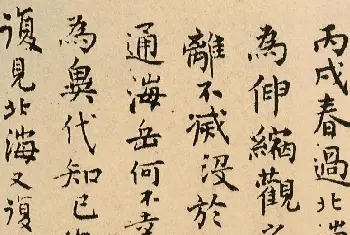 丙戌春過北海
為仰縮觀
離不滅沒於
通海岳何不幸
為異代知己
復見北海又復